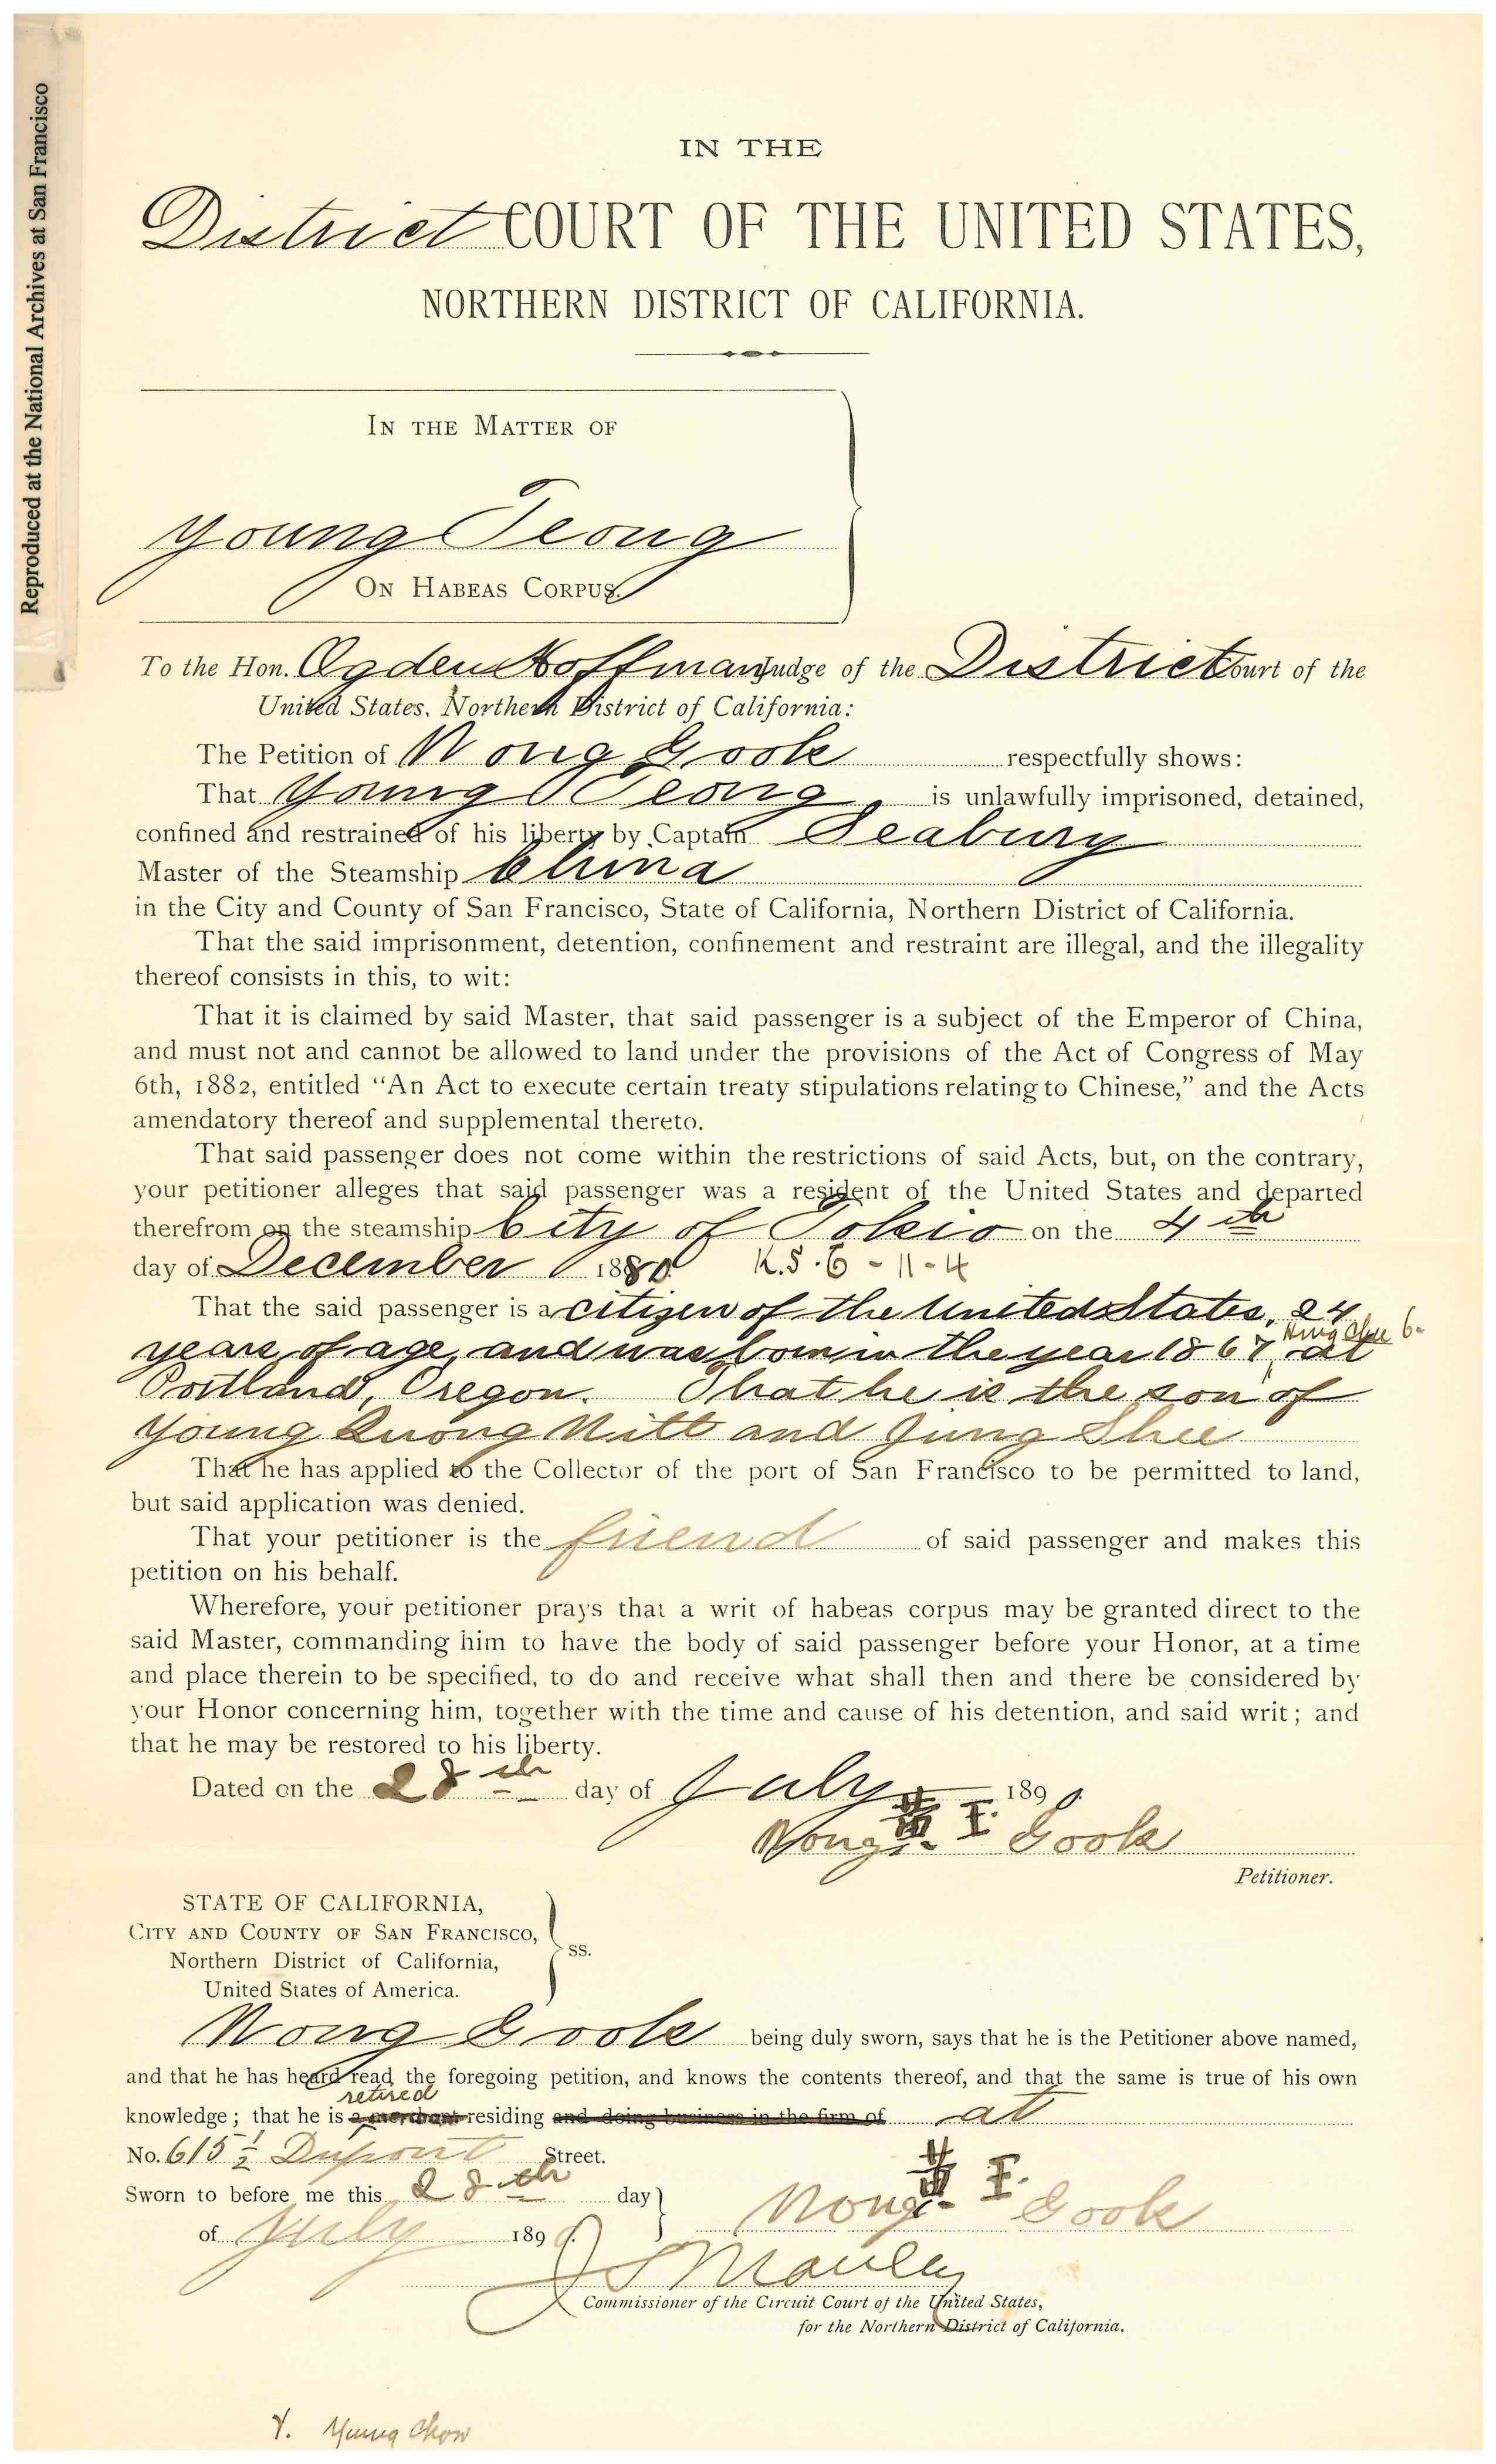 Reproduced at the National Archives at San Francisco
IN THE
District COURT OF THE UNITED STATES,
NORTHERN DISTRICT OF CALIFORNIA.
IN THE MATTER OF
Young Teong
ON HABEAS CORPUS.
To the Hon. Ogden Hoffman Judge of the District Court of the
United States, Northern District of California:
The Petition of Wong Gook respectfully shows:
That Young Teong, is unlawfully imprisoned, detained,
confined and restrained of his liberty by Captain Seabury
Master of the Steamship China
in the City and County of San Francisco, State of California, Northern District of California.
That the said imprisonment, detention, confinement and restraint are illegal, and the illegality
thereof consists in this, to wit:
That it is claimed by said Master, that said passenger is a subject of the Emperor of China,
and must not and cannot be allowed to land under the provisions of the Act of Congress of May
6th, 1882, entitled "An Act to execute certain treaty stipulations relating to Chinese," and the Acts
amendatory thereof and supplemental thereto.
That said passenger does not come within the restrictions of said Acts, but, on the contrary,
your petitioner alleges that said passenger was a resident of the United States and departed
therefrom on the steamship City of Tokio on the 4th
day of December 1880. K.S. 6 - 11 - 4
That the said passenger is a citizen of the United States, 24
years of age, and was born in the year 1867, at
Portland, Oregon. That he is the son of
Young Quong Nitt and Jung Shee
That he has applied to the Collector of the port of San Francisco to be permitted to land,
but said application was denied.
That your petitioner is the friend of said passenger and makes this
petition on his behalf.
Wherefore, your petitioner prays that a writ of habeas corpus may be granted direct to the
said Master, commanding him to have the body of said passenger before your Honor, at a time
and place therein to be specified, to do and receive what shall then and there be considered by
your Honor concerning him, together with the time and cause of his detention, and said writ; and
that he may be restored to his liberty.
Dated on the 28th day of July 1890.
Wong 黃 Gook
Petitioner.
STATE OF CALIFORNIA,
CITY AND COUNTY OF SAN FRANCISCO,
ss.
Northern District of California,
United States of America.
Wong Gook being duly sworn, says that he is the Petitioner above named,
and that he has heard read the foregoing petition, and knows the contents thereof, and that the same is true of his own
retired
knowledge; that he is a merchant residing and doing business in the firm of at
No. 615 1/2 Dupont Street.
Sworn to before me this 28th day
of July 1890.
Wong 黃 Gook
J S Manley
Commissioner of the Circuit Court of the United States,
for the Northern District of California.
Y. Young Chow